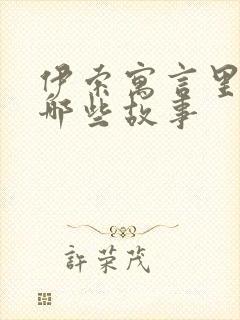 伊索寓言里
那些故事
許荣茂